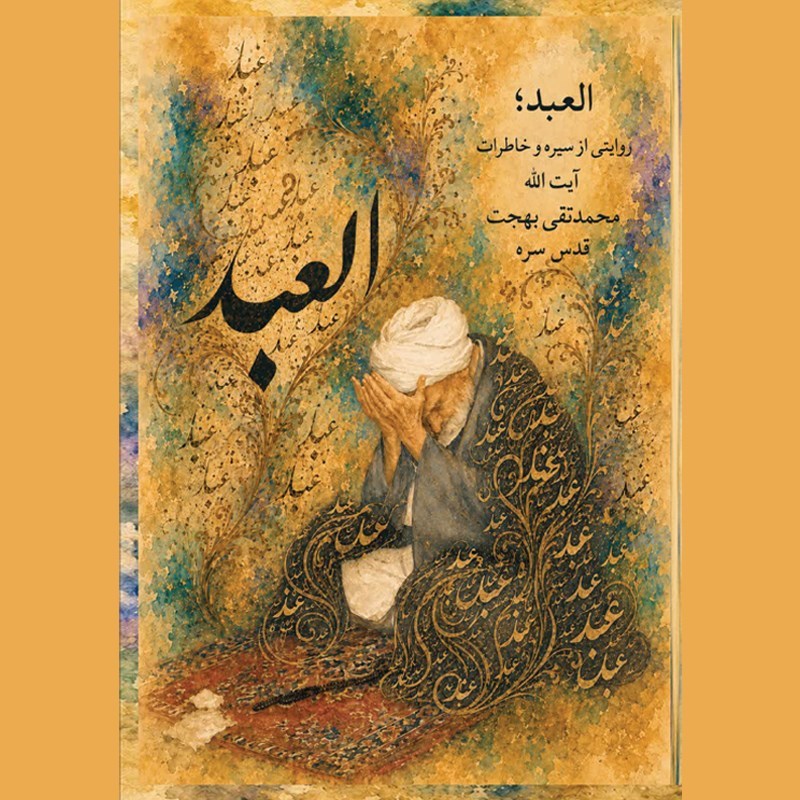 العبد؛
روایتی از سیره و خاطرات
آیت الله
محمدتقی بهجت
قدس سره
العبد
عبد